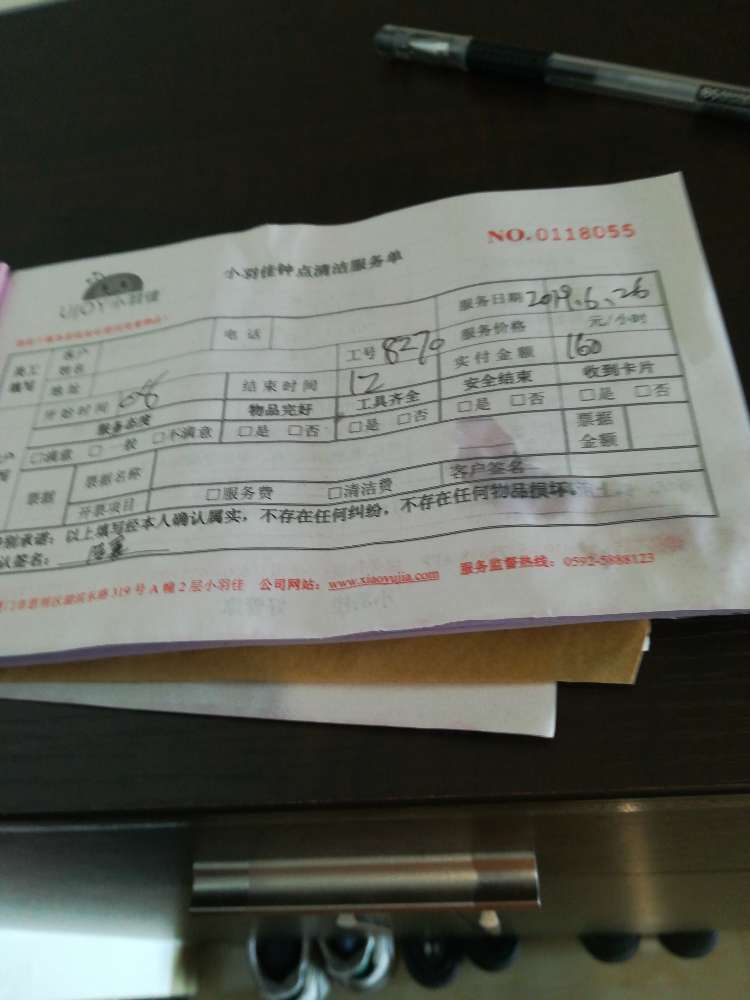 NO.0118055
UJOY小羽佳
小羽佳钟点清洁服务单
客户姓名 电话 服务日期 2019.6.26
填写 地址 工号 8270 服务价格 元/小时
开始时间 08 结束时间 12 实付金额 160
服务态度 物品完好 工具齐全 安全结束 收到卡片
□满意 □一般 □不满意 □是 □否 □是 □否 □是 □否 □是 □否
票据 票据名称 票据金额
开票项目 □服务费 □清洁费 客户签名
别承诺：以上填写经本人确认属实，不存在任何纠纷，不存在任何物品损坏。
认签名：
319号A幢2层小羽佳 公司网站：www.xiaoyujia.com 服务监督热线：0592-5888123